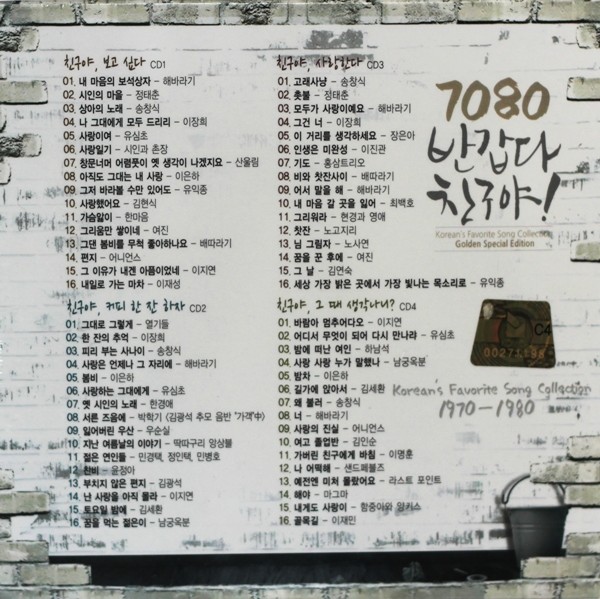 친구야, 보고 싶다 CD1
01. 내 마음의 보석상자 - 해바라기
02. 시인의 마을 - 정태춘
03. 상아의 노래 - 송창식
04. 나 그대에게 모두 드리리 - 이장희
05. 사랑이여 - 유심초
06. 사랑일기 - 시인과 촌장
07. 창문너머 어렴풋이 옛 생각이 나겠지요 - 산울림
08. 아직도 그대는 내 사랑 - 이은하
09. 그저 바라볼 수만 있어도 - 유익종
10. 사랑했어요 - 김현식
11. 가슴앓이 - 한마음
12. 그리움만 쌓이네 - 여진
13. 그댄 봄비를 무척 좋아하나요 - 배따라기
14. 편지 - 어니언스
15. 그 이유가 내겐 아픔이었네 - 이지연
16. 내일로 가는 마차 - 이재성
친구야, 커피 한 잔 하자 CD2
01. 그대로 그렇게 - 열기들
02. 한 잔의 추억 - 이장희
03. 피리 부는 사나이 - 송창식
04. 사랑은 언제나 그 자리에 - 해바라기
05. 봄비 - 이은하
06. 사랑하는 그대에게 - 유심초
07. 옛 시인의 노래 - 한경애
08. 서른 즈음에 - 박학기 (김광석 추모 음반 "가객"中)
09. 잃어버린 우산 - 우순실
10. 지난 여름날의 이야기 - 딱따구리 앙상블
11. 젊은 연인들 - 민경택, 정인택, 민병호
12. 찬비 - 윤정아
13. 부치지 않은 편지 - 김광석
14. 난 사랑을 아직 몰라 - 이지연
15. 토요일 밤에 - 김세환
16. 꿈을 먹는 젊은이 - 남궁옥분
친구야, 사랑한다 CD3
01. 고래사냥 - 송창식
02. 촛불 - 정태춘
03. 모두가 사랑이예요 - 해바라기
04. 그건 너 - 이장희
05. 이 거리를 생각하세요 - 장은아
06. 인생은 미완성 - 이진관
07. 기도 - 홍삼트리오
08. 비와 찻잔사이 - 배따라기
09. 어서 말을 해 - 해바라기
10. 내 마음 갈 곳을 잃어 - 최백호
11. 그리워라 - 현경과 영애
12. 찻잔 - 노고지리
13. 님 그림자 - 노사연
14. 꿈을 꾼 후에 - 여진
15. 그 날 - 김연숙
16. 세상 가장 밝은 곳에서 가장 빛나는 목소리로 - 유익종
친구야, 그 때 생각나니? CD4
01. 바람아 멈추어다오 - 이지연
02. 어디서 무엇이 되어 다시 만나랴 - 유심초
03. 밤에 떠난 여인 - 하남석
04. 사랑 사랑 누가 말했나 - 남궁옥분
05. 밤차 - 이은하
06. 길가에 앉아서 - 김세환
07. 왜 불러 - 송창식
08. 너 - 해바라기
09. 사랑의 진실 - 어니언스
10. 여고 졸업반 - 김인순
11. 가버린 친구에게 바침 - 이명훈
12. 나 어떡해 - 샌드페블즈
13. 예전엔 미처 몰랐어요 - 라스트 포인트
14. 해야 - 마그마
15. 내게도 사랑이 - 함중아와 양키스
16. 골목길 - 이재민
7080
반갑다
친구야!
Korean's Favorite Song Collection
Golden Special Edition
Korean's Favorite Song Collection
1970-1980